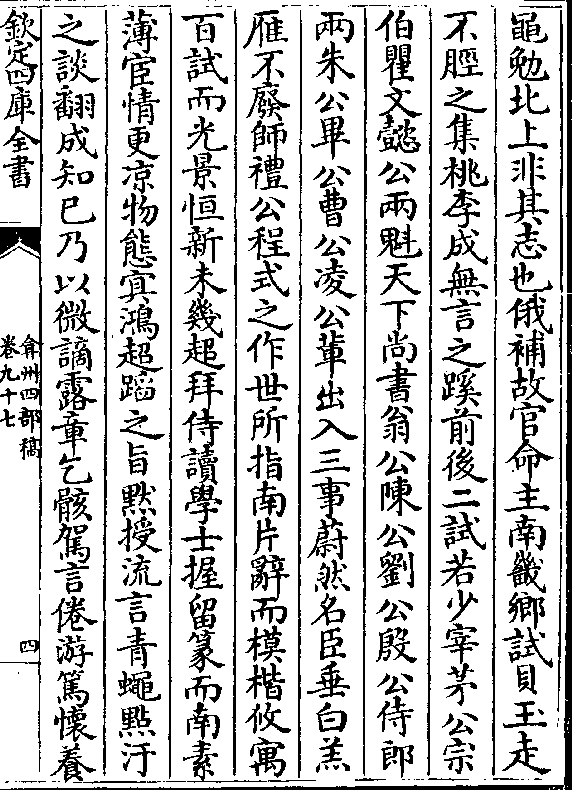 黽勉北上非其志也俄補故官命主南畿鄉試貝玉走
不脛之集桃李成無言之蹊前後二試若少宰茅公宗
伯瞿文懿公兩魁天下尚書翁公陳公劉公殷公侍郎
兩朱公畢公曹公凌公軰出入三事蔚然名臣垂白羔
雁不廢師禮公程式之作世所指南片辭而模楷攸寓
百試而光景恒新未幾起拜侍讀學士握留篆而南素
薄宦情更凉物態寘鴻超蹈之旨黙授流言青蠅㸃汙
之談翻成知已乃以微謫露章乞骸駕言倦游篤懷養
欽定四庫全書
弇州四部稿
卷九十七
四